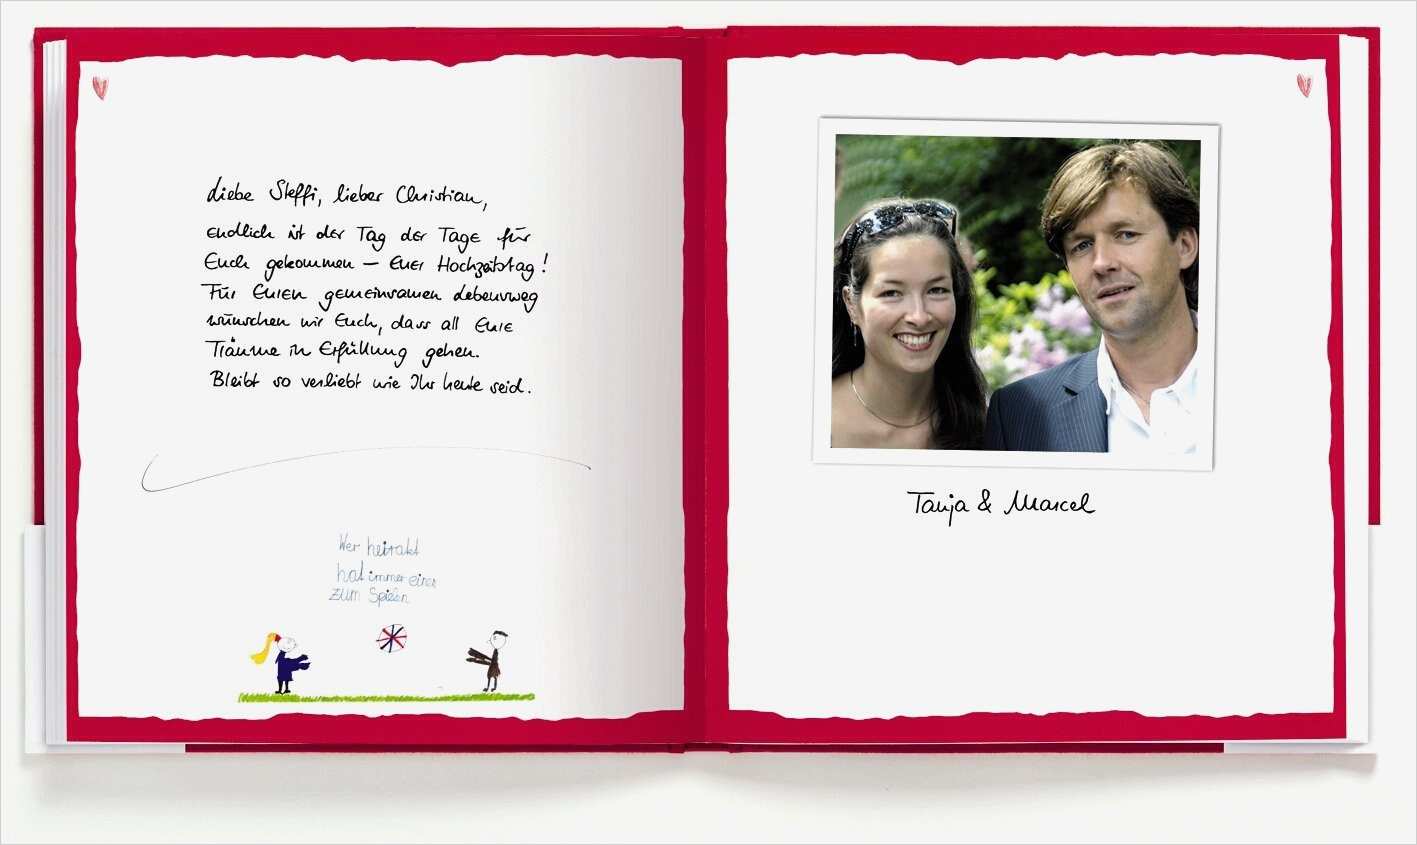 Liebe Steffi, lieber Christian,
endlich ist der Tag der Tage für
Euch gekommen – Euer Hochzeitstag!
Für Euren gemeinsamen Lebensweg
wünschen wir Euch, dass all Eure
Träume in Erfüllung gehen.
Bleibt so verliebt wie Ihr heute seid.
Wer heiratet
hat immer einen
zum Spielen
Tanja & Marcel